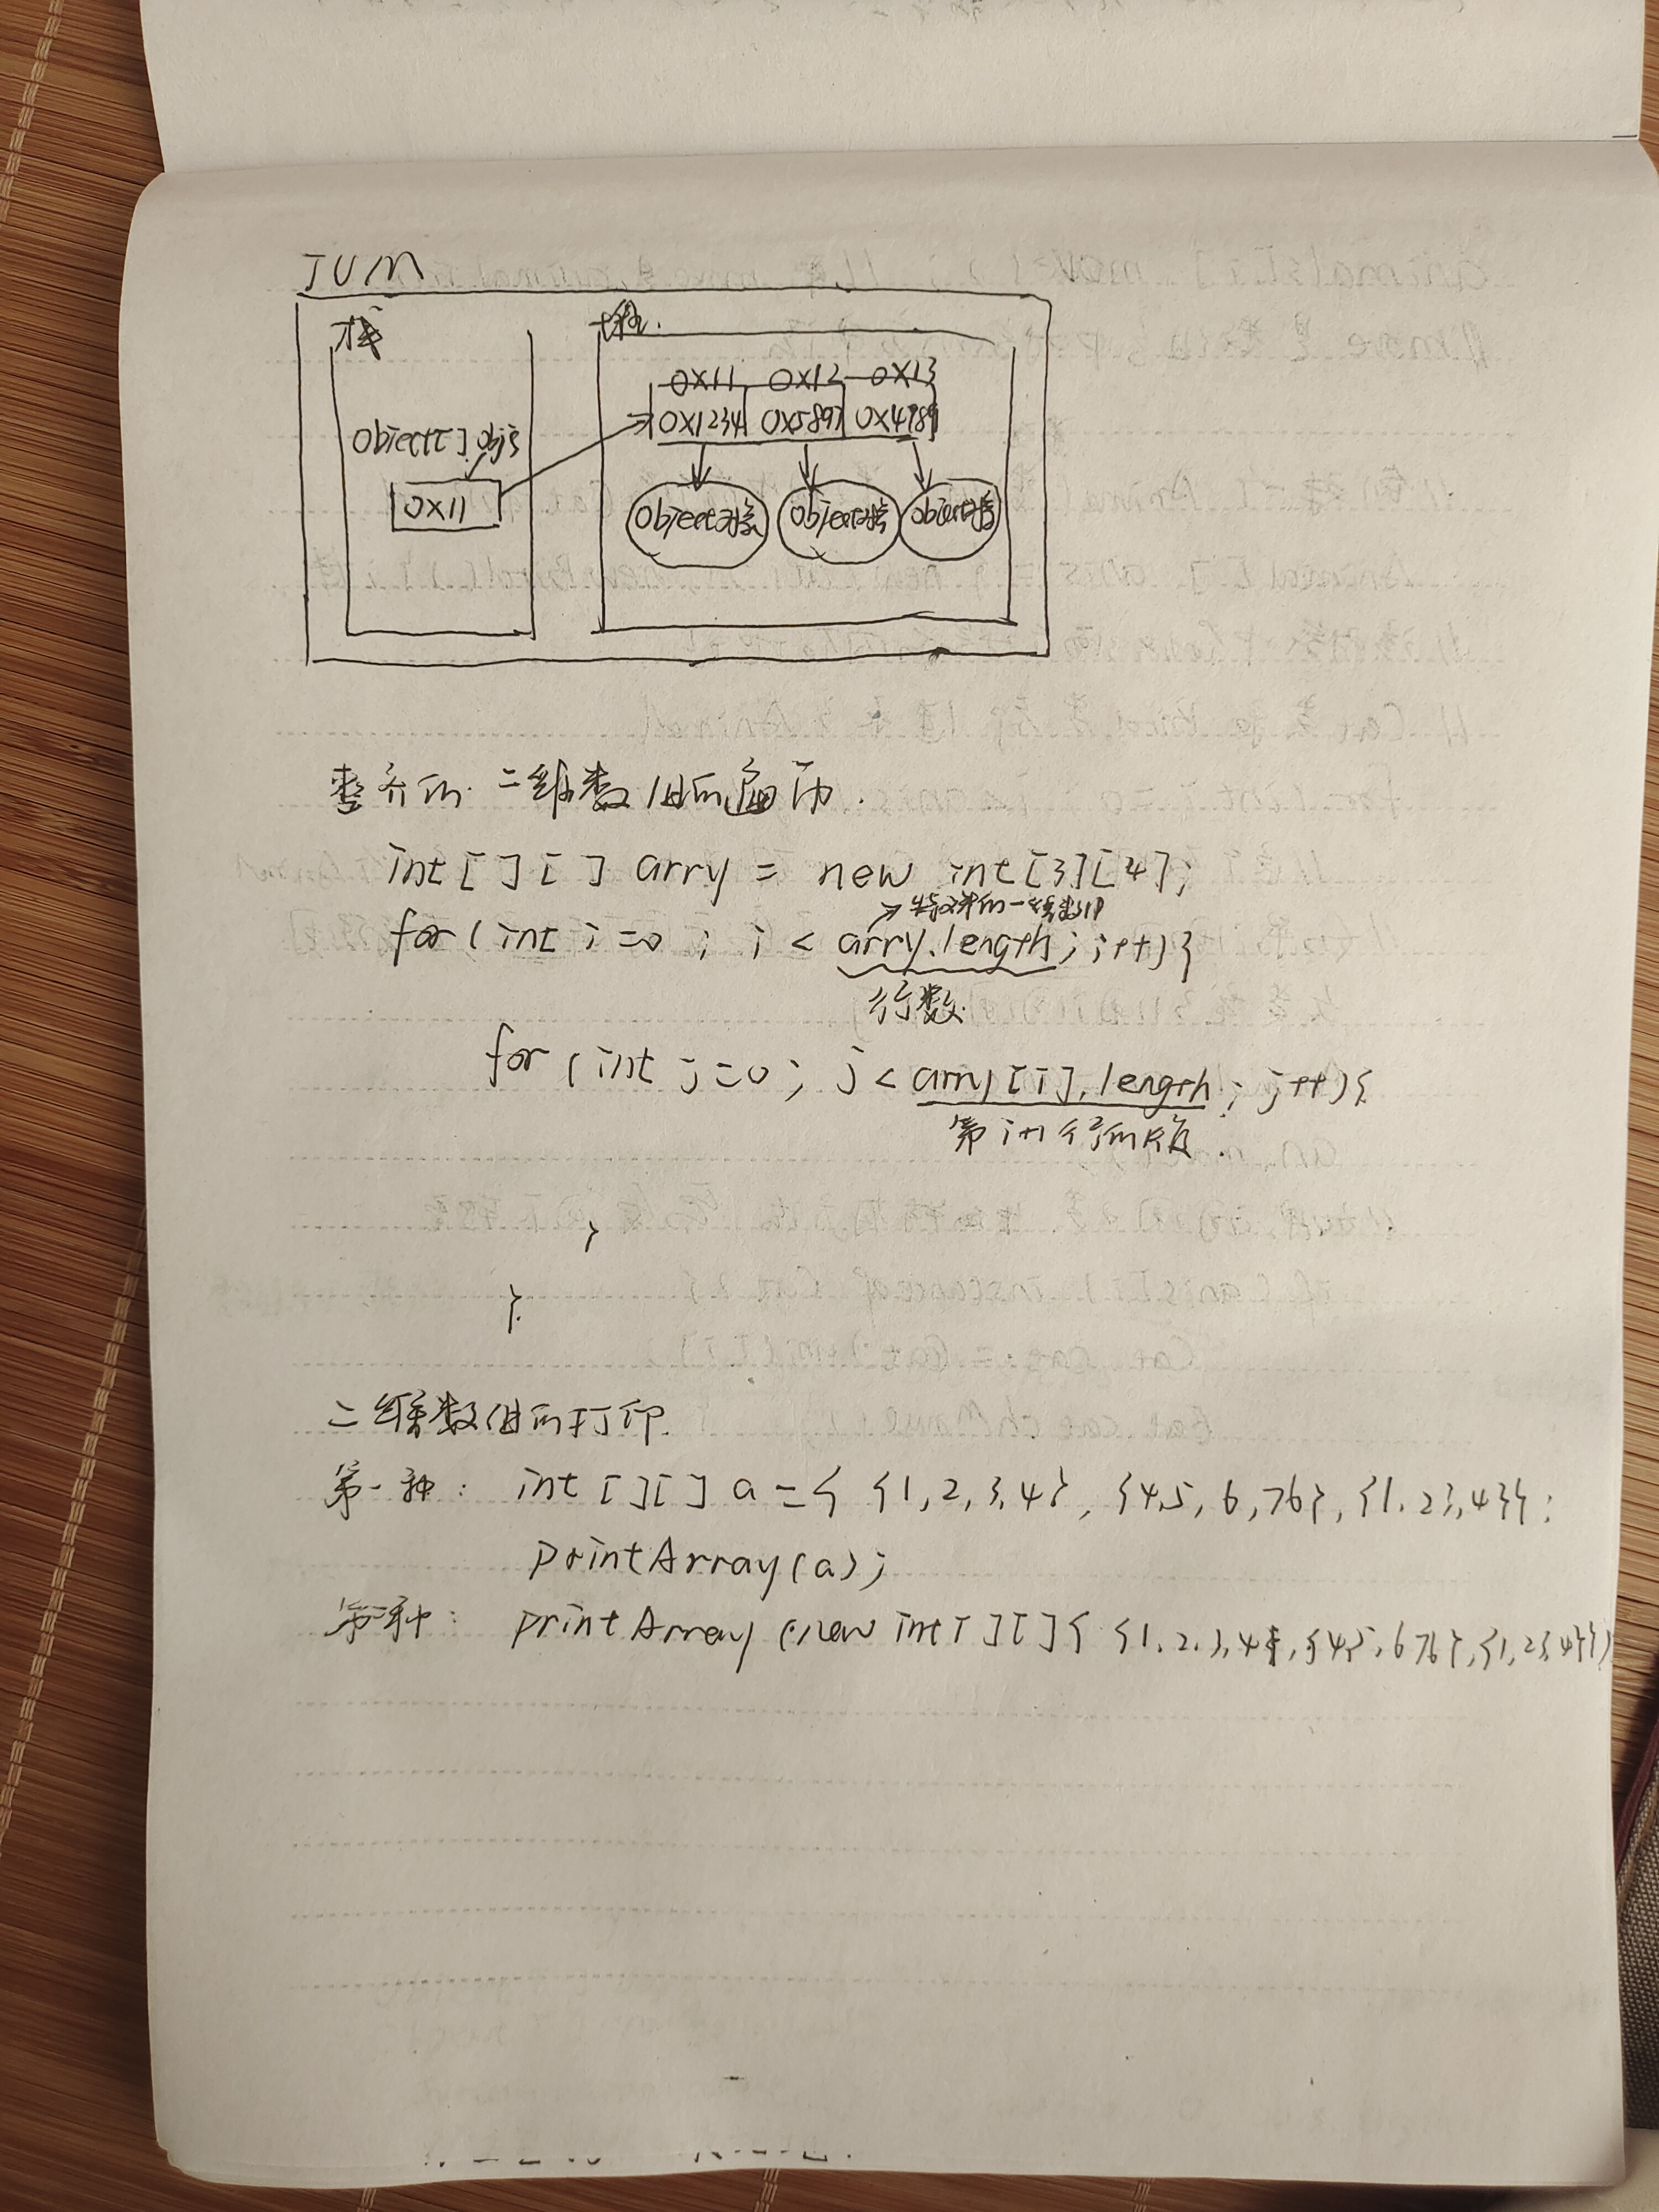 JVM
栈 堆.
0X11 0X12 0X13
0X1234 0X5897 0X4989
Object[] objs
0X11
Object对象 Object对象 Object对象
整齐的 二维数组的遍历.
int [ ] [ ] arry = new int[3][4];
特殊的一维数组
for ( int i =0 ; i < arry.length; i++) {
行数
for ( int j =0 ; j < arry [i]. length ; j++) {
第 i+1 行的长度.
}
}
二维数组的打印.
第一种: int [ ][ ] a = { {1, 2, 3, 4}, {4,5, 6, 76}, {1. 23, 4}};
printArray(a);
第二种: printArray (new int[ ][ ]{ {1. 2. 3, 4}, {4,5, 6 76}, {1, 23, 4}})